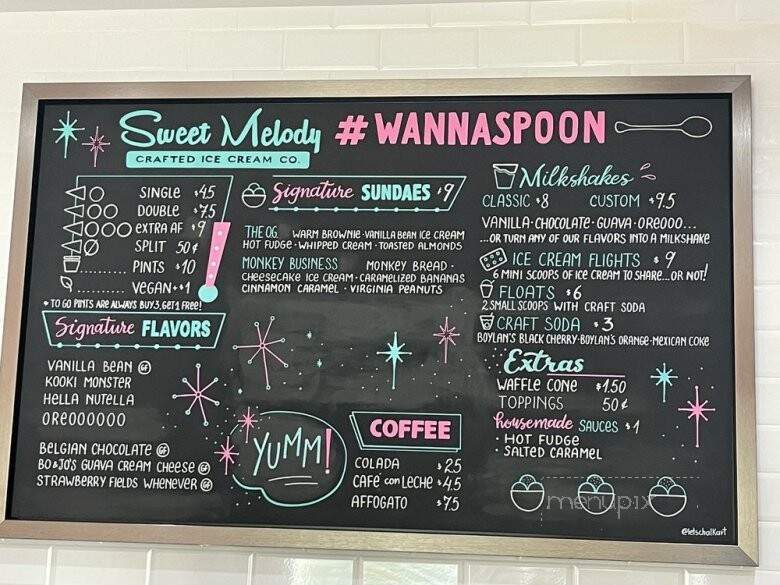 Sweet Melody
CRAFTED ICE CREAM CO.
#WANNASPOON
SINGLE $4.5
DOUBLE $7.5
EXTRA AF $9
SPLIT 50¢
PINTS $10
VEGAN ++1
* TO GO PINTS ARE ALWAYS BUY 3, GET 1 FREE!
Signature FLAVORS
VANILLA BEAN GF
KOOKI MONSTER
HELLA NUTELLA
OREOOOOOO
BELGIAN CHOCOLATE GF
BO & JO'S GUAVA CREAM CHEESE GF
STRAWBERRY FIELDS WHENEVER GF
Signature SUNDAES $9
THE OG. WARM BROWNIE · VANILLA BEAN ICE CREAM
HOT FUDGE · WHIPPED CREAM · TOASTED ALMONDS
MONKEY BUSINESS MONKEY BREAD ·
CHEESECAKE ICE CREAM · CARAMELIZED BANANAS
CINNAMON CARAMEL · VIRGINIA PEANUTS
YUMM!
COFFEE
COLADA $2.5
CAFÉ con LECHE $4.5
AFFOGATO $7.5
Milkshakes
CLASSIC $8 CUSTOM $9.5
VANILLA · CHOCOLATE · GUAVA · OREOOO...
...OR TURN ANY OF OUR FLAVORS INTO A MILKSHAKE
ICE CREAM FLIGHTS $9
6 MINI SCOOPS OF ICE CREAM TO SHARE...OR NOT!
FLOATS $6
2 SMALL SCOOPS WITH CRAFT SODA
CRAFT SODA $3
BOYLAN'S BLACK CHERRY · BOYLAN'S ORANGE · MEXICAN COKE
Extras
WAFFLE CONE $1.50
TOPPINGS 50¢
housemade SAUCES $1
· HOT FUDGE
· SALTED CARAMEL
menupix
@letschalkart